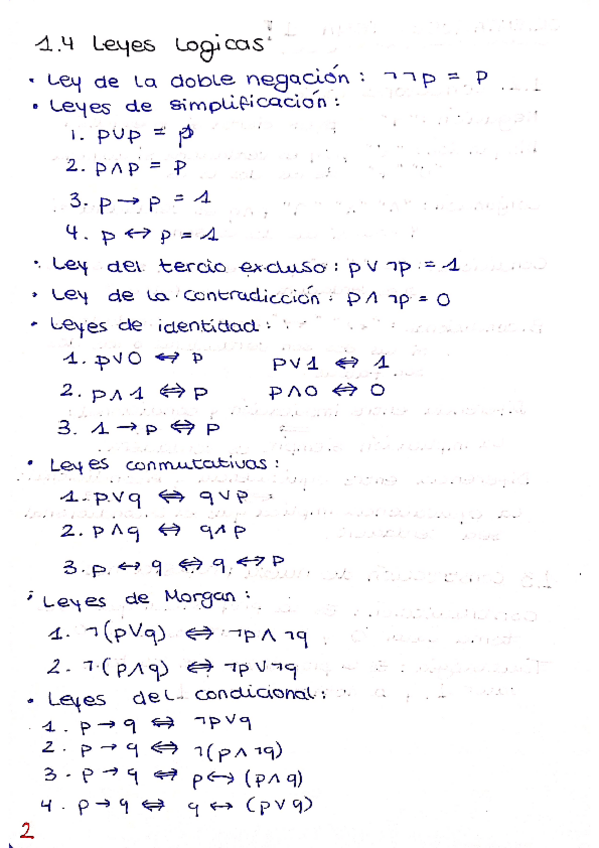 1.4 Leyes Logicas
• Ley de la doble negación: ¬¬p = p
• Leyes de simplificación:
1. p∨p = p
2. p∧p = p
3. p → p = 1
4. p ↔ p = 1
• Ley del tercio excluso: p ∨ ¬p = 1
• Ley de la contradicción: p ∧ ¬p = 0
• Leyes de identidad:
1. p∨0 ⇔ p p∨1 ⇔ 1
2. p∧1 ⇔ p p∧0 ⇔ 0
3. 1 → p ⇔ p
• Leyes conmutativas:
1. p∨q ⇔ q∨p
2. p∧q ⇔ q∧p
3. p ↔ q ⇔ q ↔ p
• Leyes de Morgan:
1. ¬(p∨q) ⇔ ¬p∧¬q
2. ¬(p∧q) ⇔ ¬p∨¬q
• Leyes del condicional:
1. p → q ⇔ ¬p∨q
2. p → q ⇔ ¬(p∧¬q)
3. p → q ⇔ p↔(p∧q)
4. p → q ⇔ q ↔ (p∨q)
2